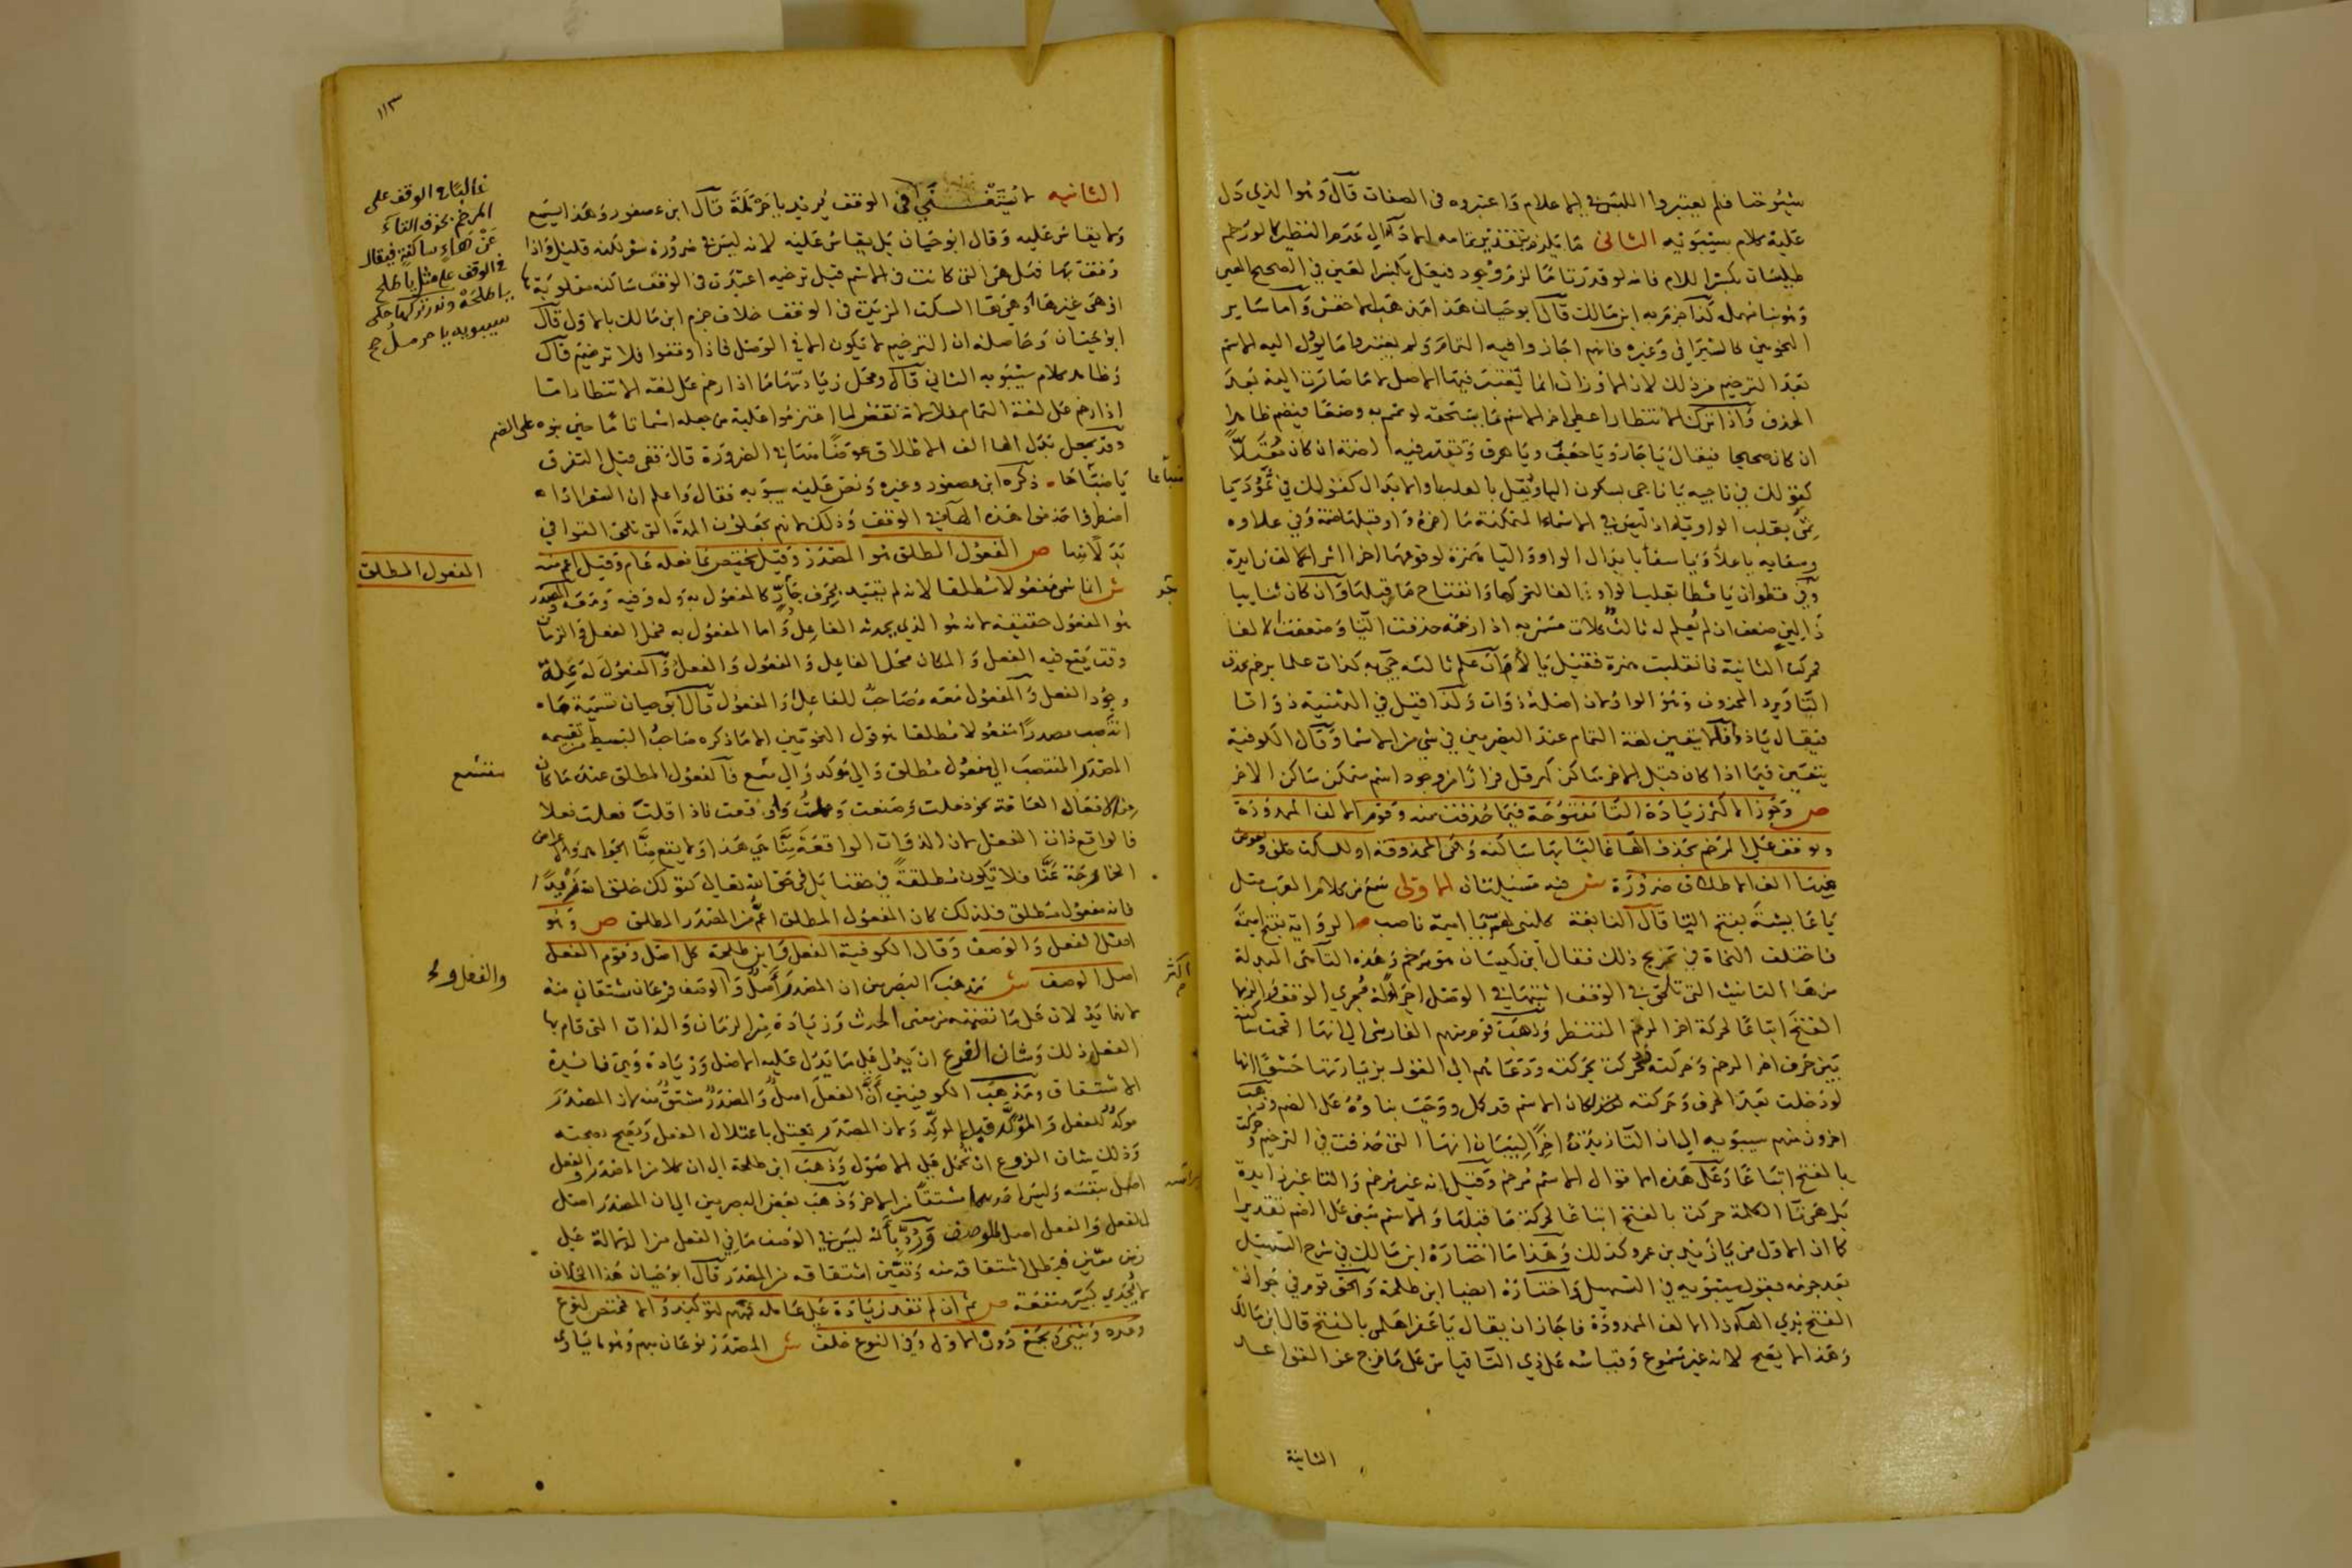 شيوخنا فلم يعتبروا اللبس في الاعلام واعتبروه في الصفات قال وهو الذي دل
عليه كلام سيبويه الثاني ما يلزم بتقدير تمامه الادآء الى عدم النظير كما لو رخم
طيلسان بكسر اللام فانه لو قدر تاما لزم وجود فيعل بكسر العين في الصحيح العين
وهو بنا مهمل كذا جزم به ابن مالك قال ابو حيان هذا مذهب الاخفش واما ساير
النحويين كالسيرافي وغيره فانهم اجازوا فيه التمام ولم يعتبروا ما يؤل اليه الاسم
بعد الترخيم من ذلك لان الاوزان انما يعتبر فيها الاصل لا ما صارت اليه بعد
الحذف واذا ترك الانتظار اعطي اخر الاسم ما يستحقه لو تمم به وضعا فيضم ظاهرا
ان كان صحيحا فيقال يا جار ويا جعف ويا هرق وتقدر فيه الضمة ان كان معتلا
كقولك في ناجيه يا ناجي بسكون اليا ويعل بالقلب او الابدال كقولك في ثمود يا
ثمي بقلب الواو يا اذ ليس في الاسماء المتمكنة ما اخره واو قبلها ضمة وفي علاوه
وسقايه يا علاء ويا سقاء بابدال الواو واليا همزة لوقوعهما اخرا اثر الف زايدة
وفي قطوان يا قطا بقلب الواو الفا لتحركها وانفتاح ما قبلها وان كان ثنائيا
ذا لين ضعف ان لم يعلم له ثالث كلات مسمى به اذا رخمته حذفت التا وضعفت الالف
فحركت الثانية فانقلبت همزة فقيل يا لاء وان علم ثالثه جئ به كذات علما يرخم بحذف
التا ويرد المحذوف وهو الواو لان اصله ذوات ولذا قيل في التثنية ذواتا
فيقال يا ذوا ولا يتعين لغة التمام عند البصريين في شي من الاسما وقال الكوفية
يتعين فيما اذا كان قبل الاخر ساكن كهرقل فرارا من وجود اسم متمكن ساكن الاخر
ص وجوز الاكثر زيادة التا مفتوحة فيما حذفت منه وقوم الالف الممدودة
ويوقف على المرخم بحذف الها غالبا بها ساكنه وهي المحذوفة او للسكت خلف ويعوض
منها الف الاطلاق ضرورة ش فيه مسئلتان الاولى سمع من كلام العرب مثل
يا عايشة بفتح التا قال النابغة كليني لهم يا اميمة ناصب الرواية بفتح اميمة
فاختلف النحاة في تخريج ذلك فقال ابن كيسان هو مرخم وهذه التا هي المبدلة
من ها التانيث التي تلحق في الوقف اثبتها في الوصل اجراء له مجرى الوقف والزمها
الفتح اتباعا لحركة اخر المرخم المنتظر وذهب قوم منهم الفارسي الى انها اقحمت ساكنة
بين حرف اخر المرخم وحركته فحركت بحركته ودعاهم الى القول بزيادتها حشوا انها
لو دخلت بعد الحرف وحركته لكان الاسم قد كمل ووجب بناؤه على الضم وذهب
اخرون منهم سيبويه الى ان التا زيدت اخرا لبيان انها التي حذفت في الترخيم وحركت
بالفتح اتباعا وعلى هذه الاقوال الاسم مرخم وقيل انه غير مرخم والتا غير زايدة
بل هي تا الكلمة حركت بالفتح اتباعا لحركة ما قبلها والاسم مبنى على الضم تقديرا
كما ان الاول من يا زيد بن عمرو كذلك وهذا ما اختاره ابن مالك في شرح التسهيل
بعد جزمه بقول سيبويه في التسهيل واختاره ايضا ابن طلحة والحق قوم في جواز
الفتح بذي الهآ ذا الالف الممدودة فاجاز ان يقال يا عفرا هلمي بالفتح قال ابن مالك
وهذا لا يصح لانه غير مسموع وقياسه على ذي التا قياس على ما خرج عن القواعد
الثانية
١١٣
الثانيه لا يستغنى في الوقف يريد يا حرملة قال ابن عصفور وهذا يسمع
ولا يقاس عليه وقال ابو حيان بل يقاس عليه لانه ليس في ضرورة شعر لكنه قليل واذا
وقفت بها فهل هي التي كانت في الاسم قبل ترخيمه اعيدت في الوقف ساكنه مقلوبة ها
او هي غيرها وهي ها السكت المزيدة في الوقف خلاف جزم ابن مالك بالاول قال
ابو حيان وحاصله ان الترخيم لا يكون الا في الوصل فاذا وقفوا فلا ترخيم قال
وظاهر كلام سيبويه الثاني قال ومحل زيادتها ما اذا رخم على لغة الانتظار اما
اذا رخم على لغة التمام فلا لانه نقض لما اعتزموا عليه من جعله اسما تاما حين بنوه على الضم
وقد يجعل بدل الها الف الاطلاق عوضا منها في الضرورة قال قفي قبل التفرق
يا ضباعا ذكره ابن عصفور وغيره ونص عليه سيبويه فقال واعلم ان الشعرا اذا
اضطروا حذفوا هذه الهآ في الوقف وذلك لانهم يجعلون المدة التي تلحق القوافي
بدلا منها ص المفعول المطلق هو المصدر وقيل يختص بما فعله عام وقيل اعم منه
ش انما سمي مفعولا مطلقا لانه لم يقيد بحرف جار كالمفعول به وله وفيه ومعه والمصدر
هو المفعول حقيقة لانه هو الذي يحدثه الفاعل واما المفعول به فمحل الفعل والزمان
وقت يقع فيه الفعل والمكان محل الفاعل والمفعول والفعل والمفعول له علة
وجود الفعل والمفعول معه مصاحب للفاعل او المفعول قال ابو حيان تسمية ما
انتصب مصدرا مفعولا مطلقا هو قول النحويين الا ما ذكره صاحب البسيط من تقسيمه
المصدر المنتصب الى مفعول مطلق والى مؤكد والى متسع فالمفعول المطلق عنده ما كان
من الافعال العامة نحو فعلت وصنعت وعملت واوقعت فاذا قلت فعلت فعلا
فالواقع ذات الفعل لان الذوات الواقعة منا هي هذا ولا يقع منا الجواهر والاعراض
الخارجة عنا فلا تكون مطلقة في حقنا بل في حق الله تعالى كقولك خلق الله زيدا
فانه مفعول مطلق فلذلك كان المفعول المطلق اعم من المصدر المطلق ص وهو
اصل الفعل والوصف وقال الكوفية الفعل وابن طلحة كل اصل وقوم الفعل
اصل الوصف ش مذهب البصريين ان المصدر اصل والوصف فرعان مشتقان منه
لانهما يدلان على ما تضمنه من معنى الحدث وزيادة من الزمان والذات التي قام بها
الفعل وذلك وشان الفرع ان يدل على ما يدل عليه الاصل وزيادة وهي فائدة
الاشتقاق ومذهب الكوفيين ان الفعل اصل والمصدر مشتق منه لان المصدر
موكد للفعل والمؤكد قبل الموكد ولان المصدر يعتل باعتلال الفعل ويصح بصحته
وذلك شان الفروع ان تحمل على الاصول وذهب ابن طلحة الى ان كلا من المصدر والفعل
اصل بنفسه وليس احدهما مشتقا من الاخر وذهب بعض البصريين الى ان المصدر اصل
للفعل والفعل اصل للوصف ورد بانه ليس في الوصف ما في الفعل من الدلالة على
زمن معين فبطل اشتقاقه منه وتعين اشتقاقه من المصدر قال ابو حيان هذا الخلاف
لا يجدي كبير منفعة ص ثم ان لم تفد زيادة على عامله فمبهم لتوكيد والا فمختص لنوع
وعدد ويثنى ويجمع دون الاول وفي النوع خلف ش المصدر نوعان مبهم وهو ما يساوي
غالبا في الوقف على
المرخم بحذف التآء
عن هاء ساكنة فيقال
في الوقف على مثل يا طلح
يا طلحه وندر تركها حكى
سيبويه يا حرمل صح
المفعول المطلق
متسع
والفعل
ضباعا
اكثر
براسه